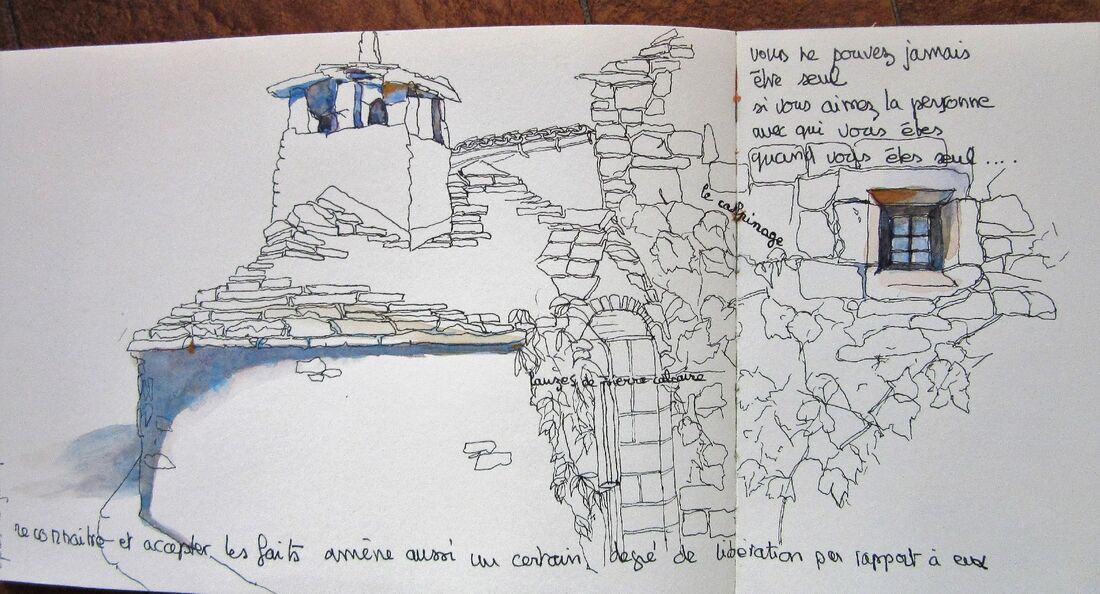 vous ne pouvez jamais
être seul
si vous aimez la personne
avec qui vous êtes
quand vous êtes seul ....
le caussinage
lauzes de pierre calcaire
reconnaitre et accepter les faits amène aussi un certain degré de libération par rapport à eux